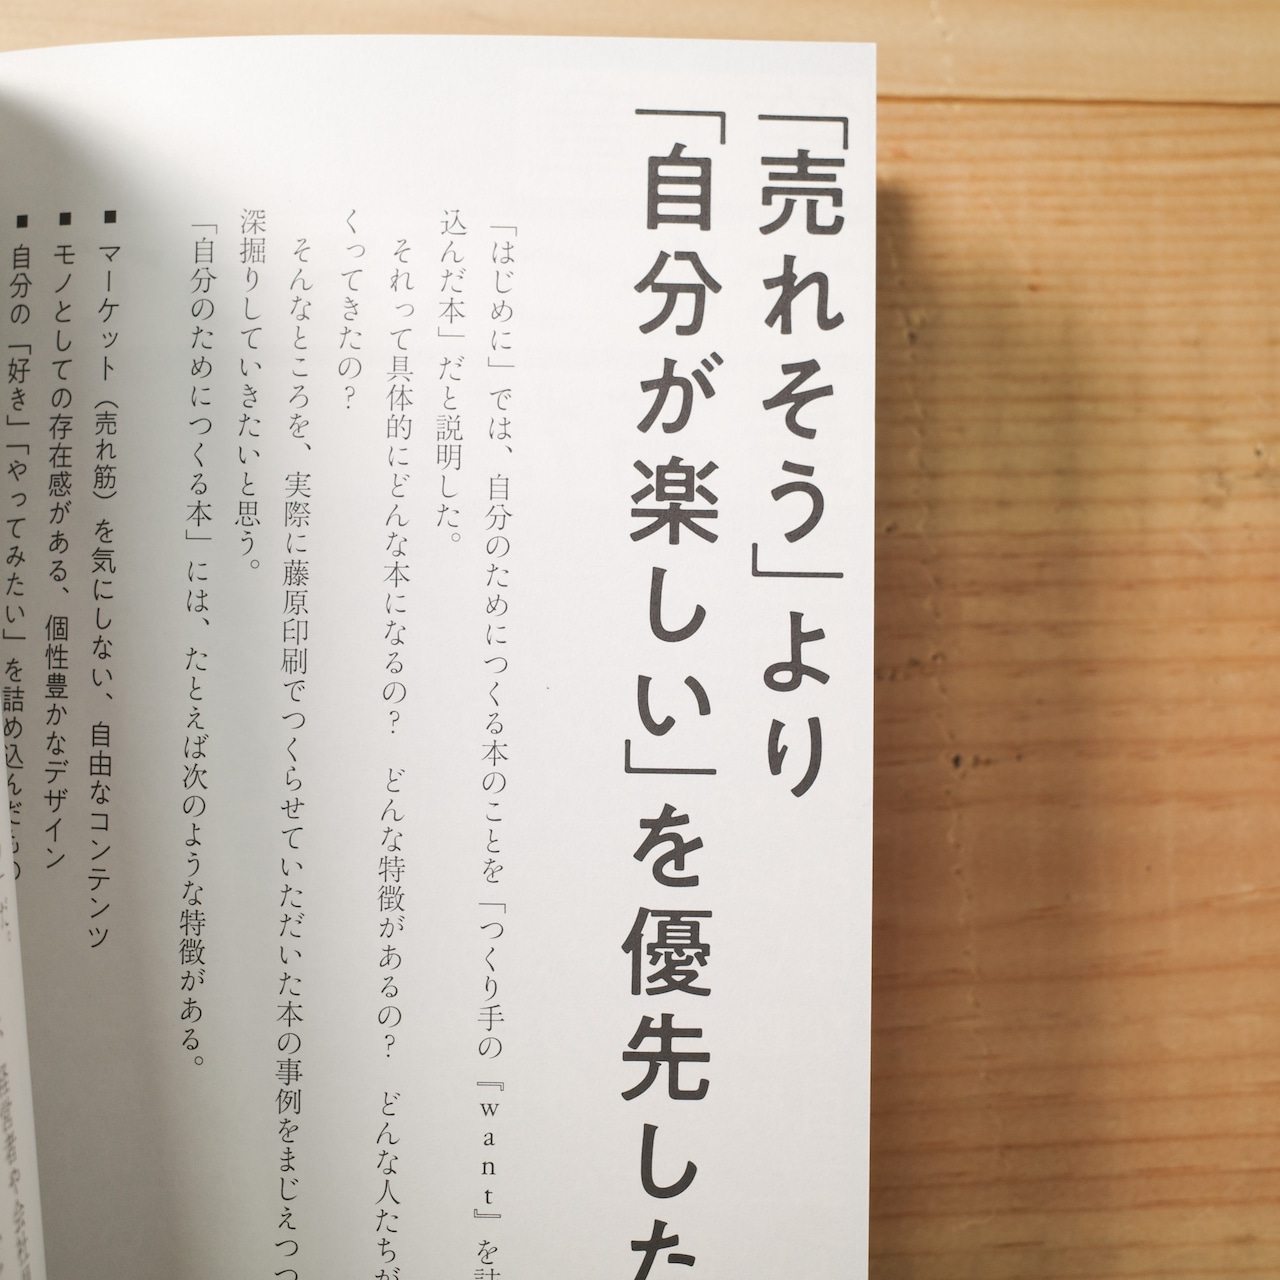 「売れそう」より
「自分が楽しい」を優先した
「はじめに」では、自分のためにつくる本のことを「つくり手の『want』を詰
込んだ本」だと説明した。
それって具体的にどんな本になるの?　どんな特徴があるの?　どんな人たちが
くってきたの?
そんなところを、実際に藤原印刷でつくらせていただいた本の事例をまじえつつ
深掘りしていきたいと思う。
「自分のためにつくる本」には、たとえば次のような特徴がある。
■ マーケット（売れ筋）を気にしない、自由なコンテンツ
■ モノとしての存在感がある、個性豊かなデザイン
■ 自分の「好き」「やってみたい」を詰め込んだもの
経営者や会社